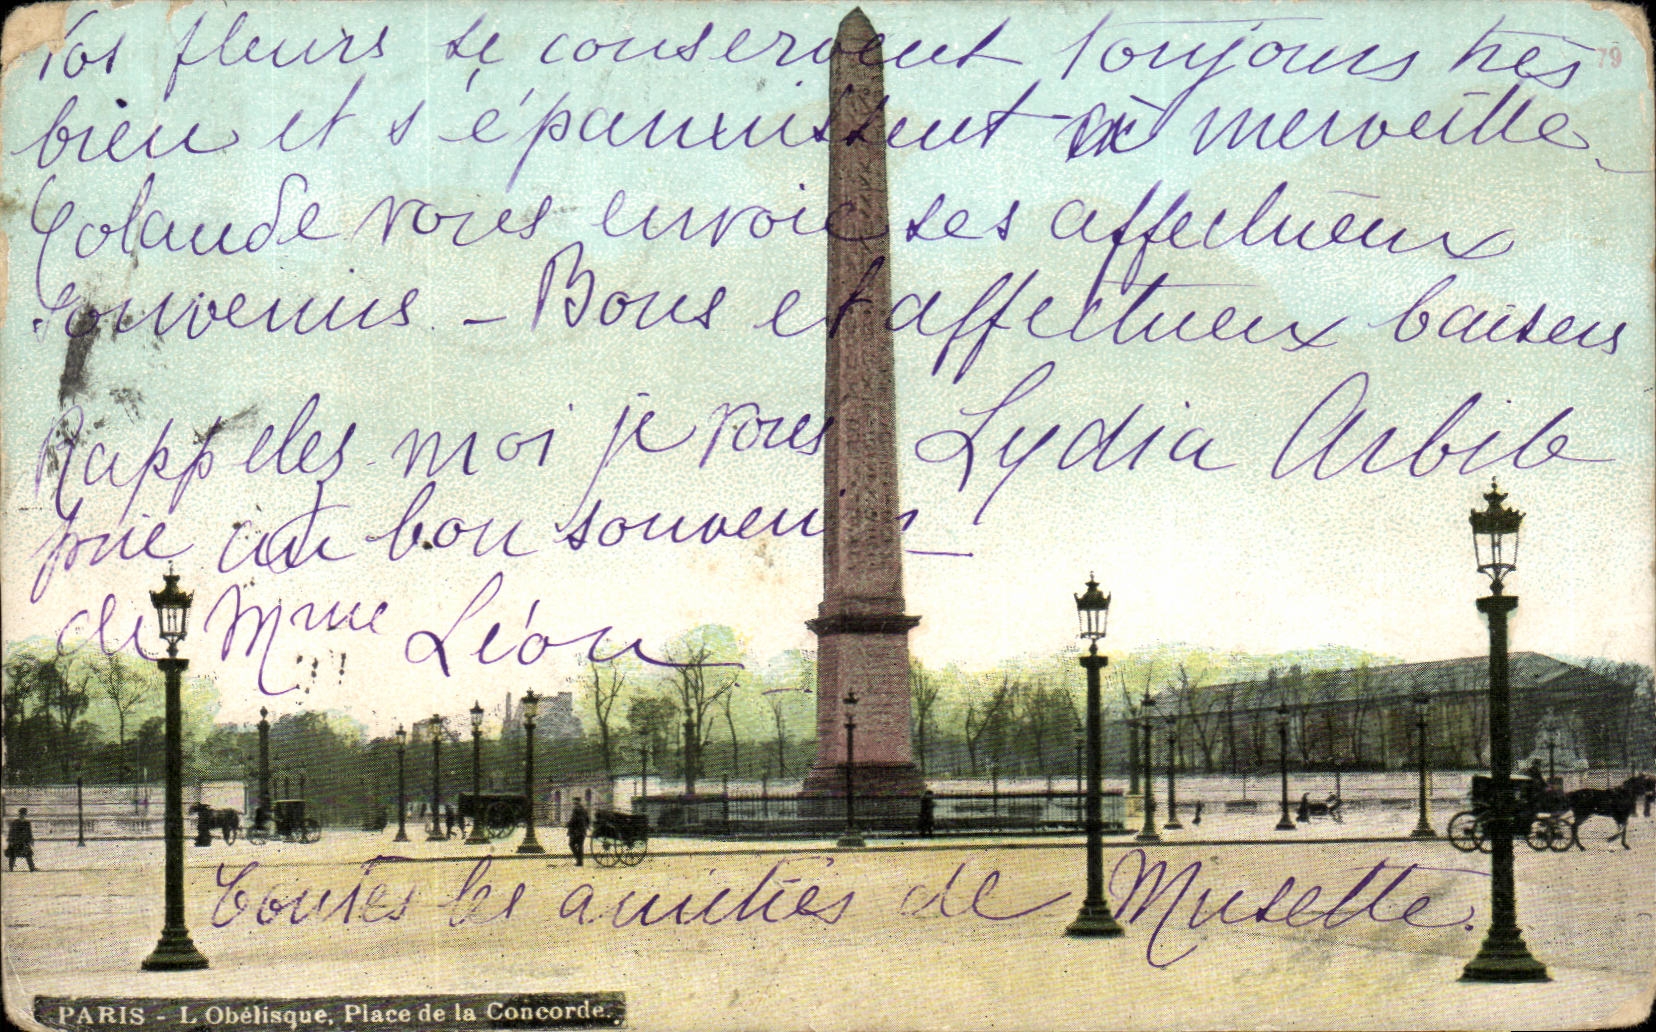 Vos fleurs se conservent toujours très
79
bien et s'épanuissent à merveille
Yolande vous envoie ses affectueux
souvenirs. - Bons et affectueux baisers
Lydia Arbib
Rappeles-moi je vous
prie au bon souvenir
de Mme Léon
Toutes les amitiés de Musette.
PARIS - L'Obélisque, Place de la Concorde.